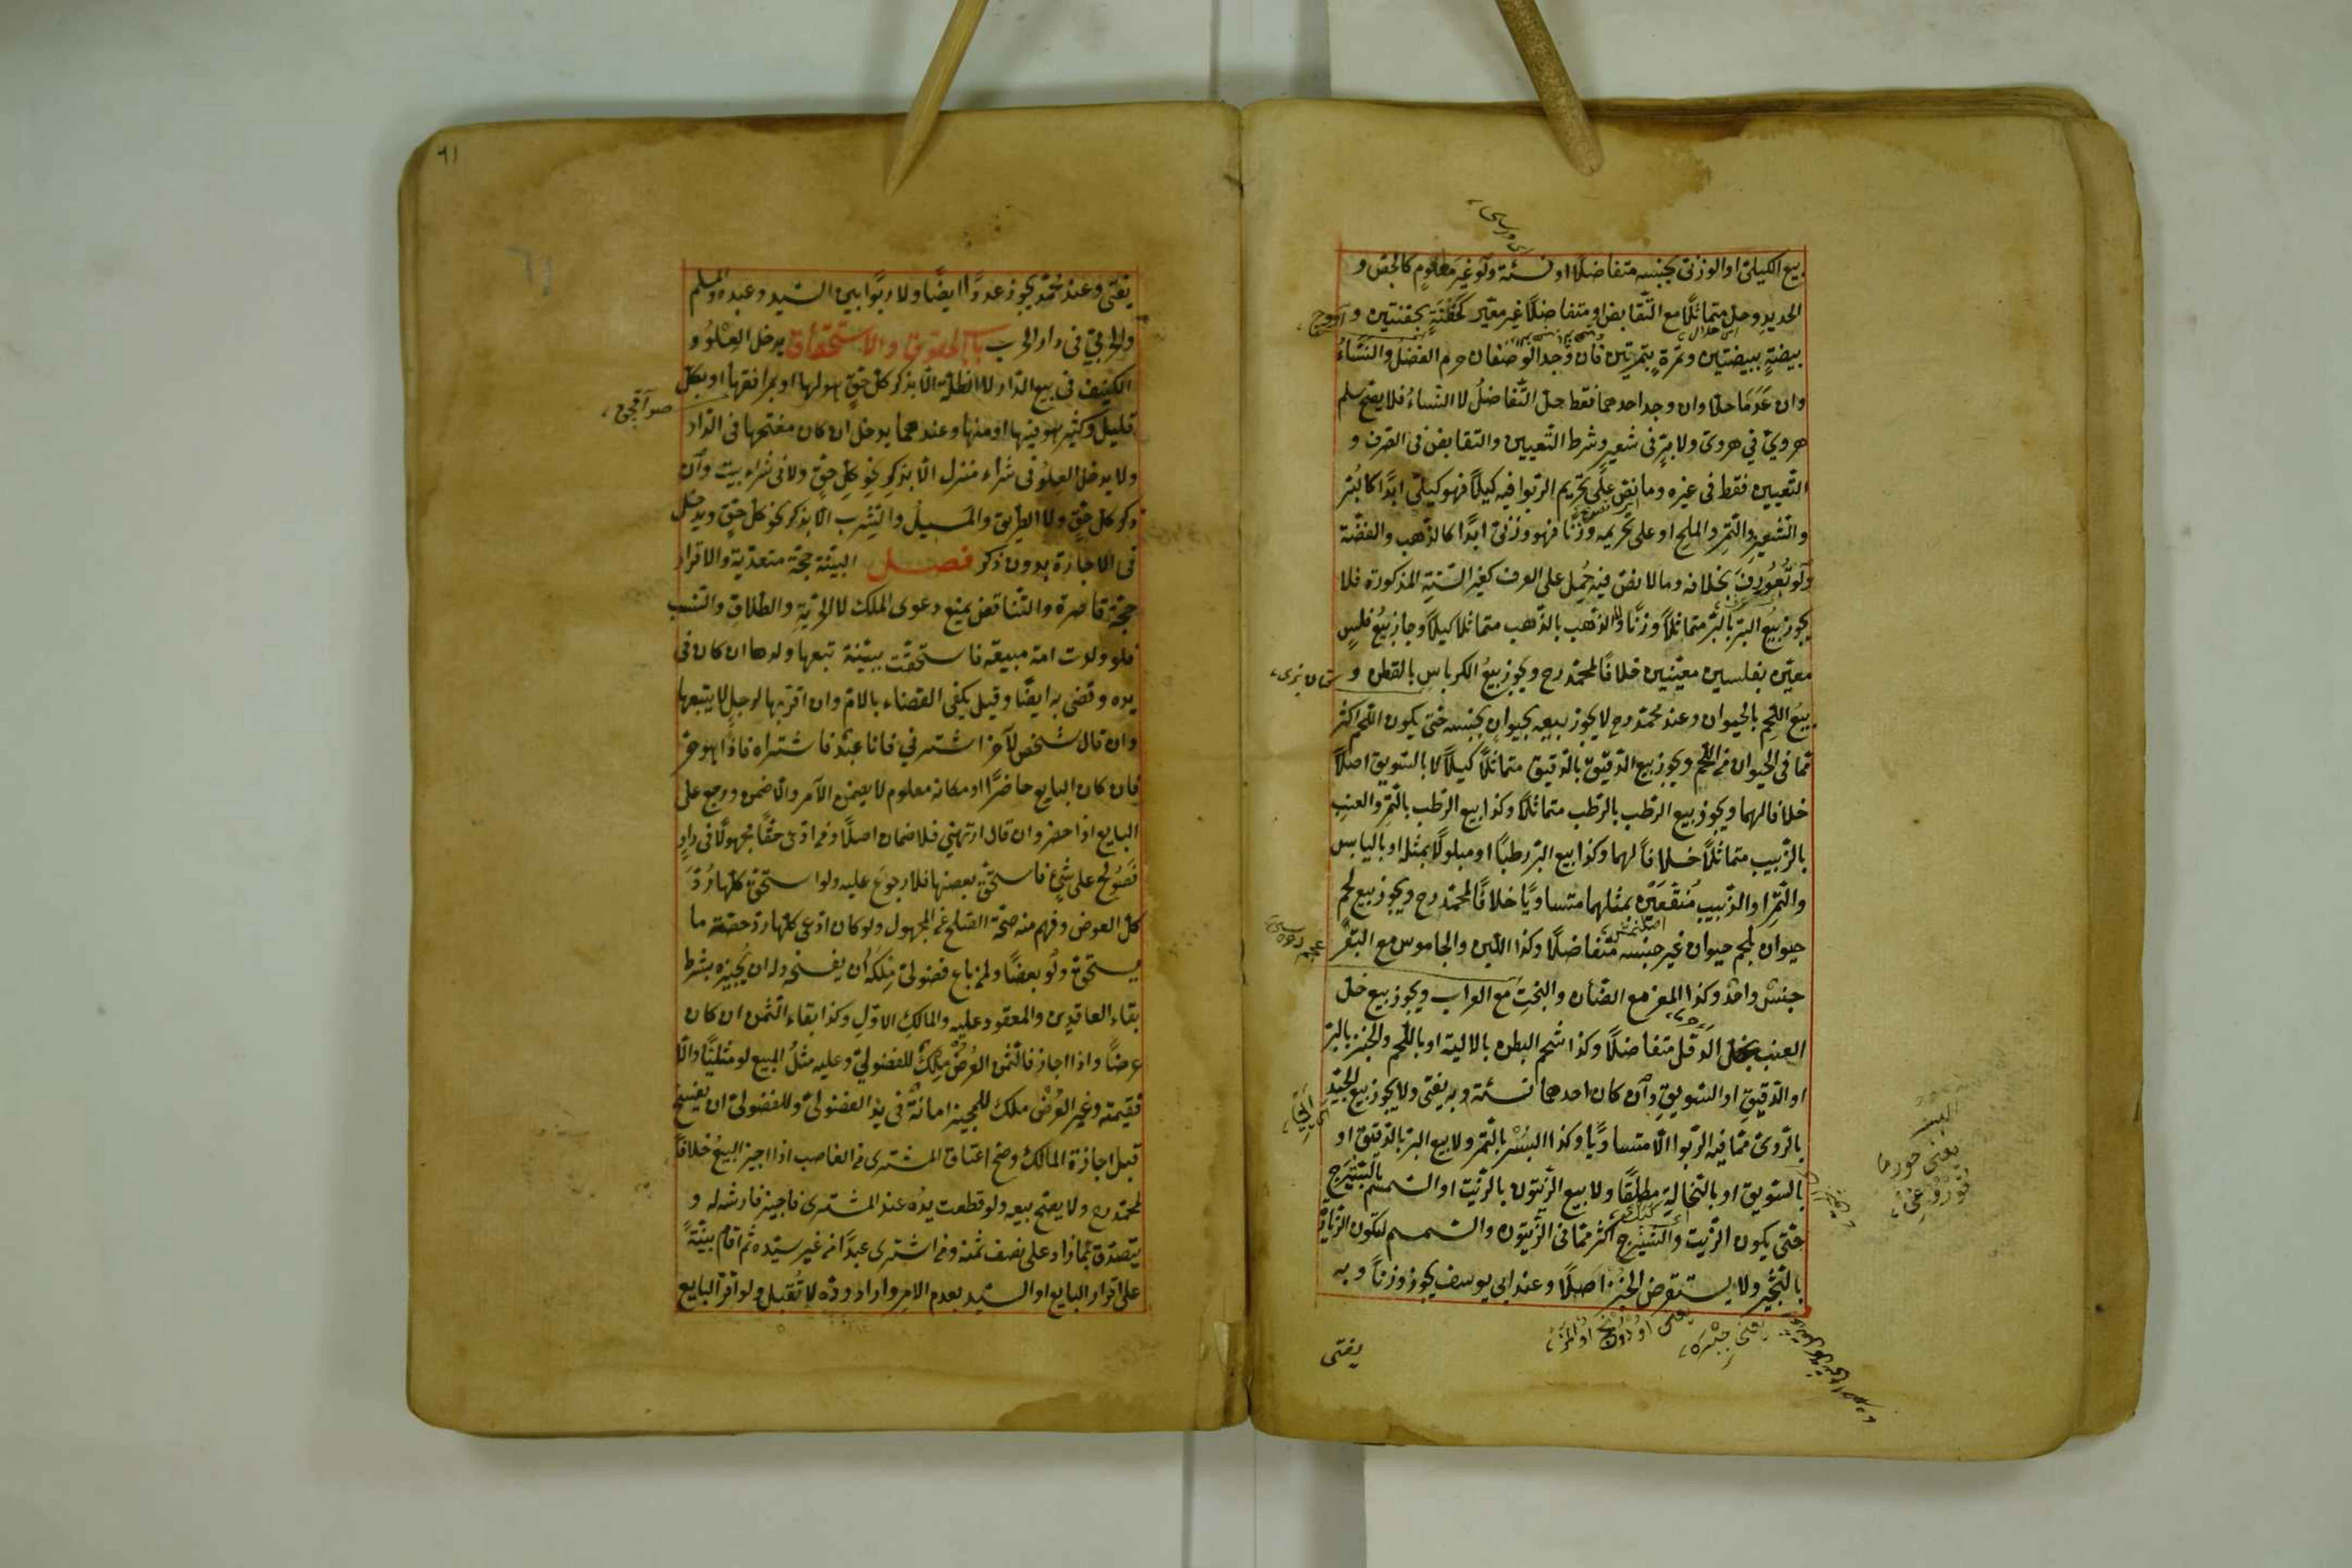 بيع الكيلى او الوزنى بجنسه متفاضلا او نسئة ولو غير مطعوم كالجص و
الحديد وحل متماثلا مع التقابض او متفاضلا غير معير كحفنة بحفنتين و
بيضة ببيضتين وتمرة بتمرتين فان وجد الوصفان حرم الفضل والنساء
وان عدما حلا وان وجد احدهما فقط حل التفاضل لا النساء فلا يصح سلم
هروي في هروى ولا بر فى شعير وشرط التعيين والتقابض فى الصرف و
التعيين فقط فى غيره وما نص على تحريم الربوا فيه كيلا فهو كيلى ابدا كالبر
والشعير والتمر والملح او على تحريمه وزنا فهو وزنى ابدا كالذهب والفضة
ولو تعورف بخلافه وما لا نص فيه حمل على العرف كغير الستة المذكورة فلا
يجوز بيع البر بالبر متماثلا وزنا ولا الذهب بالذهب متماثلا كيلا وجاز بيع فلس
معين بفلسين معينين خلافا لمحمد رح ويجوز بيع الكرباس بالقطن و
بيع اللحم بالحيوان وعند محمد رح لا يجوز بيعه بحيوان بجنسه حتى يكون اللحم اكثر
مما فى الحيوان من اللحم ويجوز بيع الدقيق بالدقيق متماثلا كيلا لا بالسويق اصلا
خلافا لهما ويجوز بيع الرطب بالرطب متماثلا وكذا بيع الرطب بالتمر والعنب
بالزبيب متماثلا خلافا لهما وكذا بيع البر رطبا او مبلولا بمثله او باليابس
والتمر او الزبيب منقعين بمثلهما متساويا خلافا لمحمد رح ويجوز بيع لحم
حيوان بلحم حيوان غير جنسه متفاضلا وكذا اللبن والجاموس مع البقر
جنس واحد وكذا المعز مع الضأن والبخت مع العراب ويجوز بيع خل
العنب بخل الدقل متفاضلا وكذا شحم البطن بالالية او باللحم والخبز بالبر
او الدقيق او السويق وان كان احدهما نسئة وبه يفتى ولا يجوز بيع الجيد
بالردى مما فيه الربوا الا متساويا وكذا البسر بالتمر ولا بيع البر بالدقيق او
بالسويق او بالنخالة مطلقا ولا بيع الزيتون بالزيت او السمسم بالشيرج
حتى يكون الزيت والشيرج اكثر مما فى الزيتون والسمسم لتكون الزيادة
بالثجير ولا يستقرض الخبز اصلا وعند ابى يوسف يجوز وزنا وبه
يفتى
البسر
يعنى خورما
قوروغى
٦١
٦١
يفتى وعند محمد يجوز عددا ايضا ولا ربوا بين السيد وعبده والمسلم
والحربي فى دار الحرب باب الحقوق والاستحقاق يدخل العلو و
الكنيف فى بيع الدار لا الظلة الا بذكر كل حق هو لها او بمرافقها او بكل
قليل وكثير هو فيها او منها وعندهما يدخل ان كان مفتحها فى الدار
ولا يدخل العلو فى شراء منزل الا بذكر نحو كل حق ولا فى شراء بيت وان
ذكر كل حق ولا الطريق والمسيل والشرب الا بذكر نحو كل حق ويدخل
فى الاجارة بدون ذكر فصل البينة حجة متعدية والاقرار
حجة قاصرة والتناقض يمنع دعوى الملك لا الحرية والطلاق والنسب
فلو ولدت امة مبيعة فاستحقت ببينة تبعها ولدها ان كان فى
يده وقضى به ايضا وقيل يكفى القضاء بالام وان اقر بها لرجل لا يتبعها
وان قال شخص لآخر اشترني فانا عبد فاشتراه فاذا هو حر
فان كان البايع حاضرا او مكانه معلوم لا يضمن الآمر والا ضمن ورجع على
البايع اذا حضر وان قال ارتهني فلا ضمان اصلا ومن ادعى حقا مجهولا فى دار
فصولح على شئ فاستحق بعضها فلا رجوع عليه ولو استحق كلها رد
كل العوض وفهم منه صحة الصلح عن المجهول ولو كان ادعى كلها رد حصة ما
يستحق ولو بعضا ولمن باع فضولى ملكه ان يفسخه وله ان يجيزه بشرط
بقاء العاقدين والمعقود عليه والمالك الاول وكذا بقاء الثمن ان كان
عرضا واذا اجاز فالثمن العرض ملك للفضولي وعليه مثل المبيع لو مثليا والا
فقيمته وغير العرض ملك للمجيز امانة فى يد الفضولى وللفضولى ان يفسخ
قبل اجازة المالك وصح اعتاق المشترى من الغاصب اذا اجيز البيع خلافا
لمحمد رح ولا يصح بيعه ولو قطعت يده عند المشترى فاجيز فارشه له و
يتصدق بما زاد على نصف ثمنه ومن اشترى عبدا من غير سيده ثم اقام بينة
على اقرار البايع او السيد بعدم الامر واراد رده لا تقبل ولو اقر البايع